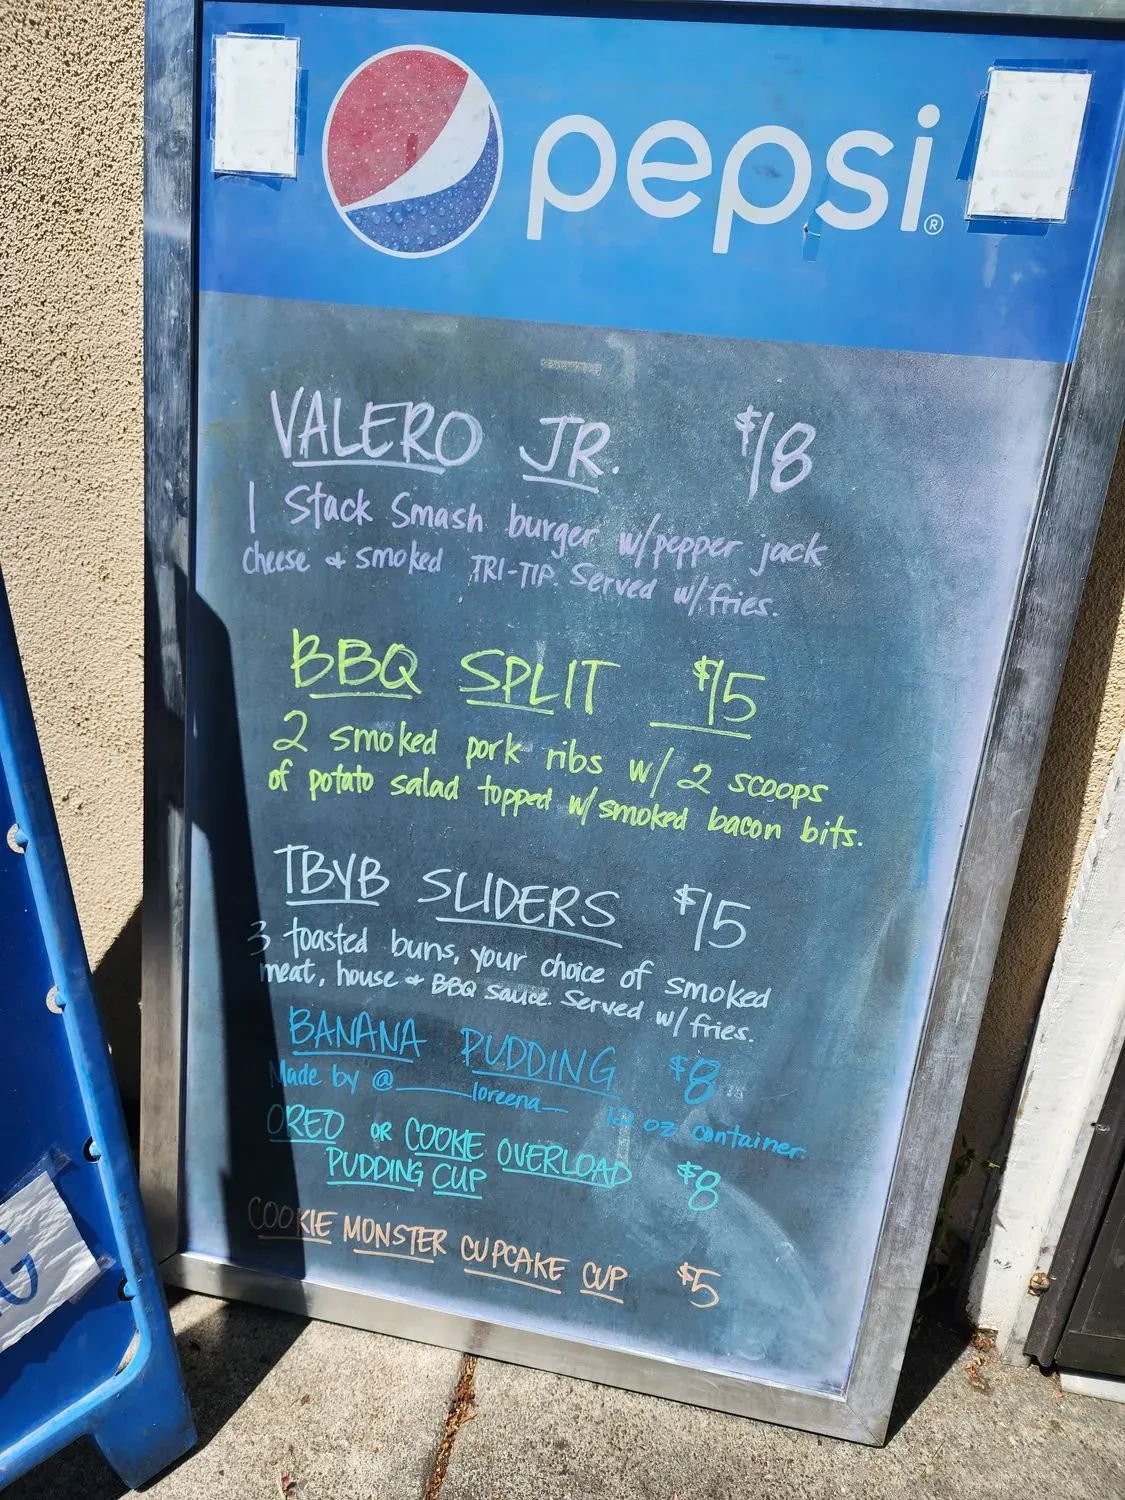 pepsi®
VALERO JR. $18
1 Stack Smash burger w/pepper jack
cheese & smoked TRI-TIP. Served w/fries.
BBQ SPLIT $15
2 smoked pork ribs w/ 2 scoops
of potato salad topped w/smoked bacon bits.
TBYB SLIDERS $15
3 toasted buns, your choice of smoked
meat, house & BBQ sauce. Served w/ fries.
BANANA PUDDING $8
Made by @____loreena_ 12 oz container.
OREO OR COOKIE OVERLOAD
PUDDING CUP $8
COOKIE MONSTER CUPCAKE CUP $5
G